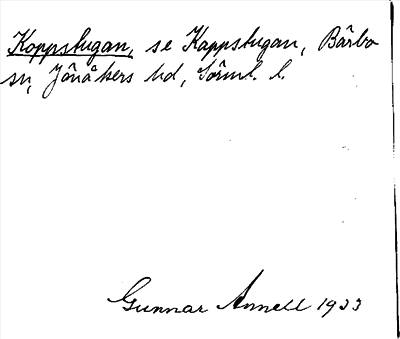 Koppstugan, se Kappstugan, Bärbo
sn, Jönåkers hd, Sörml. l.
Gunnar Annell 1933